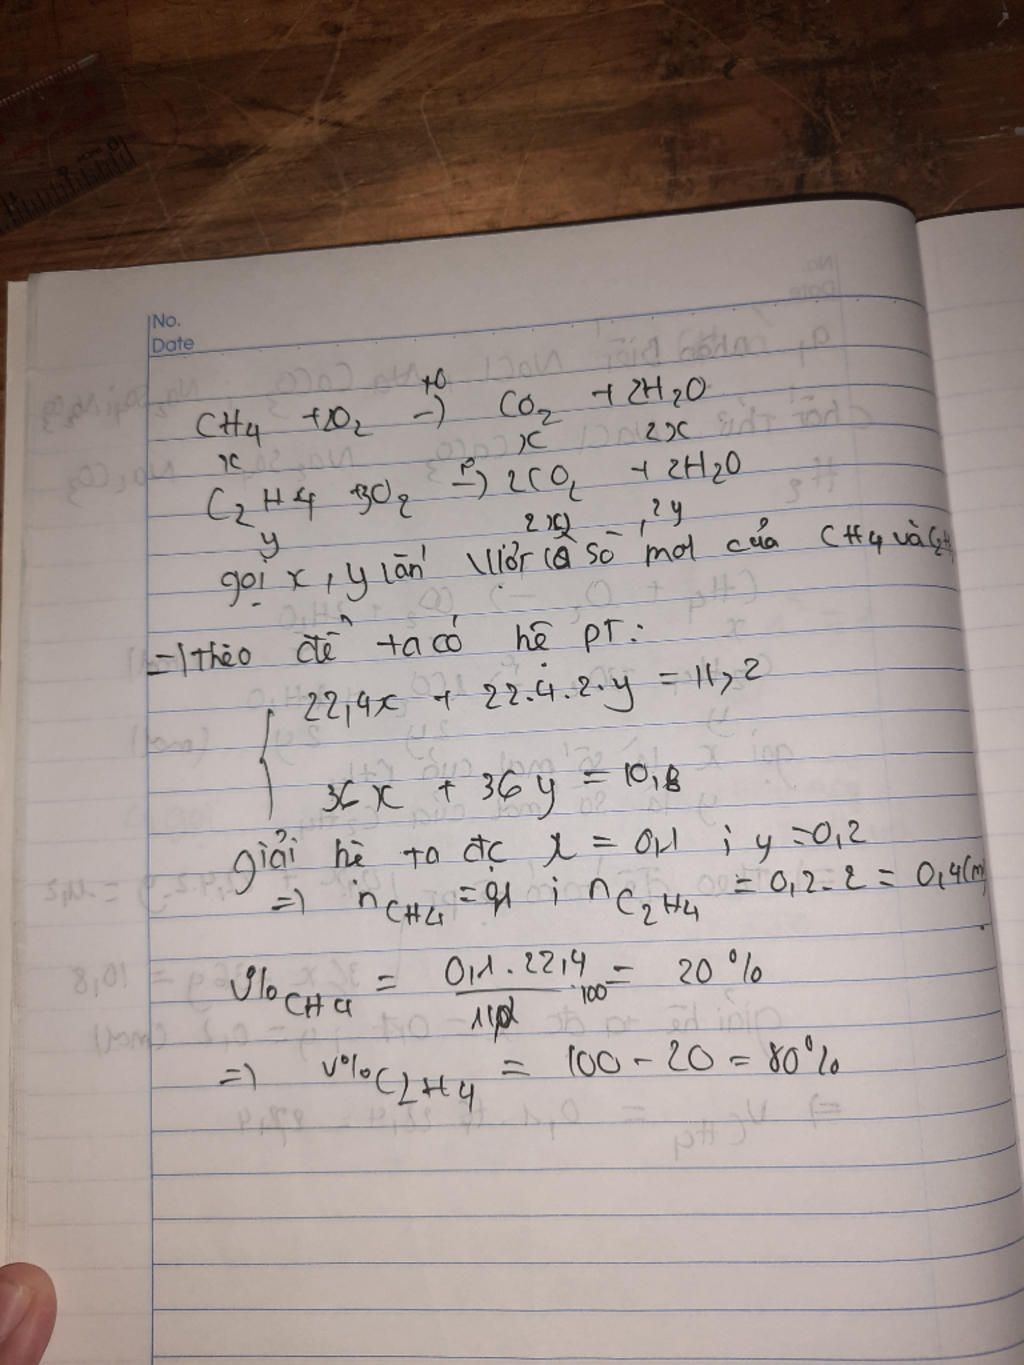 No.
Date
CH4 +2O2 → t0 CO2 + 2H2O
x x 2x
C2H4 +3O2 → to 2CO2 + 2H2O
y 2y
gọi x, y lần lượt là số mol của CH4 và C2H
=) theo đề ta có hệ PT:
22,4x + 22.4.2.y = 11,2
36x + 36y = 10,8
giải hệ ta đc x = 0,1 ; y = 0,2
=) nCH4 = 0,1 ; nC2H4 = 0,2.2 = 0,4(m)
V%CH4 = 0,1.22,4 / 11,2 .100 = 20%
=) V%C2H4 = 100 - 20 = 80%